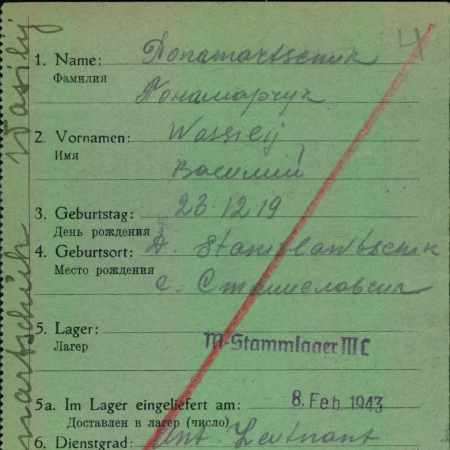 1. Name: Ponamartschuk
Фамилия
Понамарчук
4
2. Vornamen: Wassilij
Имя
Василий
3. Geburtstag: 23.12.19
День рождения
4. Geburtsort: D. Stanislawtschik
Место рождения
с. Станиславчик
5. Lager: M-Stammlager III C
Лагер
5a. Im Lager eingeliefert am: 8. Feb. 1943
Доставлен в лагер (число)
6. Dienstgrad: Unt. Leutnant
martschuk Wasily